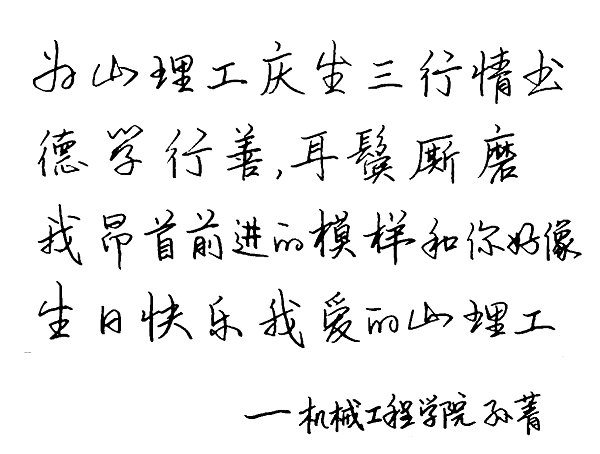 为山理工庆生三行情书
德学行善,耳鬓厮磨
我昂首前进的模样和你好像
生日快乐我爱的山理工
——机械工程学院 孙菁